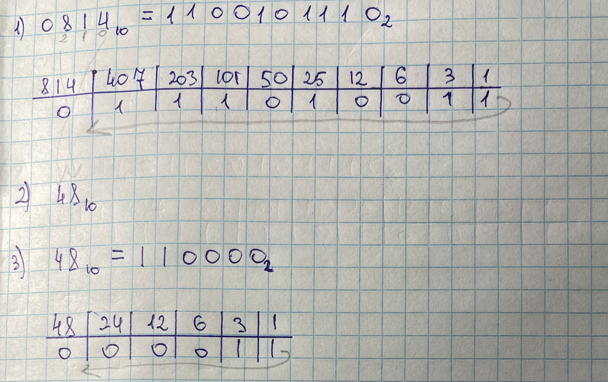 1) 0814₁₀ = 1100101110₂
2 1 0
814 407 203 101 50 25 12 6 3 1
0 1 1 1 0 1 0 0 1 1
2) 48₁₀
3) 48₁₀ = 110000₂
48 24 12 6 3 1
0 0 0 0 1 1